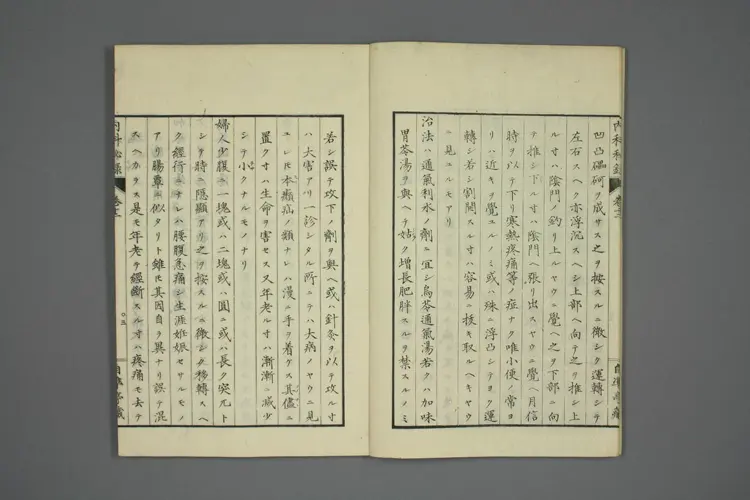 凹凸磊砢ヲ成サス之ヲ按スルニ微シク運轉シテ
左右スヘク亦浮沉スヘシ上部ヘ向テ之ヲ推シ上
ルオハ陰門ノ釣リ上ルヤウニ覺ヘ之ヲ下部ニ向
テ推シ下ルオハ陰門ニ張リ出スヤウニ覺ヘ月信
時ヲ以テ下リ寒熱疼痛等ノ症ナク唯小便ノ常ヨ
リハ近キヲ覺ユルノミ或ハ殊ニ浮凸シテヨク運
轉シ若シ割開スルオハ容易ニ拔キ取ルヘキヤウ
ニ見ユルモアリ
治法ハ通氣利水ノ劑ニ宜シ烏苓通氣湯若クハ加味
胃苓湯ヲ與ヘテ姑ク増長肥胖スルヲ禁スルノミ
若シ誤テ攻下ノ劑ヲ與ヘ或ハ針灸ヲ以テ攻ルオ
ハ大害アリ一診シタル所ニテハ大病ノヤウニ見
ユレ𪜈本癲疝ノ類ナレハ漫ニ手ヲ着ケス其儘ニ
置クオハ生命ヲ害セス又年老ルオハ漸漸ニ減少
シテ小クナルモノナリ
婦人少腹ニ一塊或ハ二塊或ハ圓ニ或ハ長ク突兀ト
シテ時ニ隱顯アリ之ヲ按スルニ微シク移轉スヘ
ク經行ニナレハ腰腹急痛シ生涯姙娠セサルモノ
アリ腸覃ニ似タリト雖𪜈其因自ラ異ナリ誤テ混
スヘカラス是モ年老テ經斷スルオハ疼痛モ去テ
内科秘錄
卷十二
内科秘錄
卷十二
〇五
自準亭藏